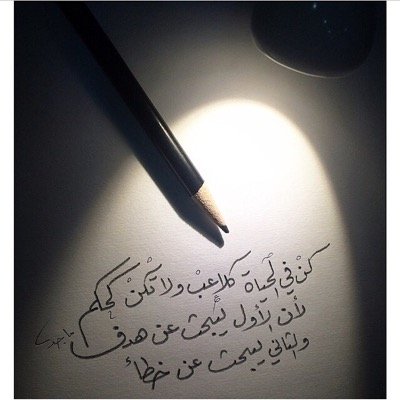 كنْ في الْحياة كلاعبْ ولا تكُنْ كحكم
لأن الأول يَبْحث عن هدف
والثاني يبحث عن خطأ